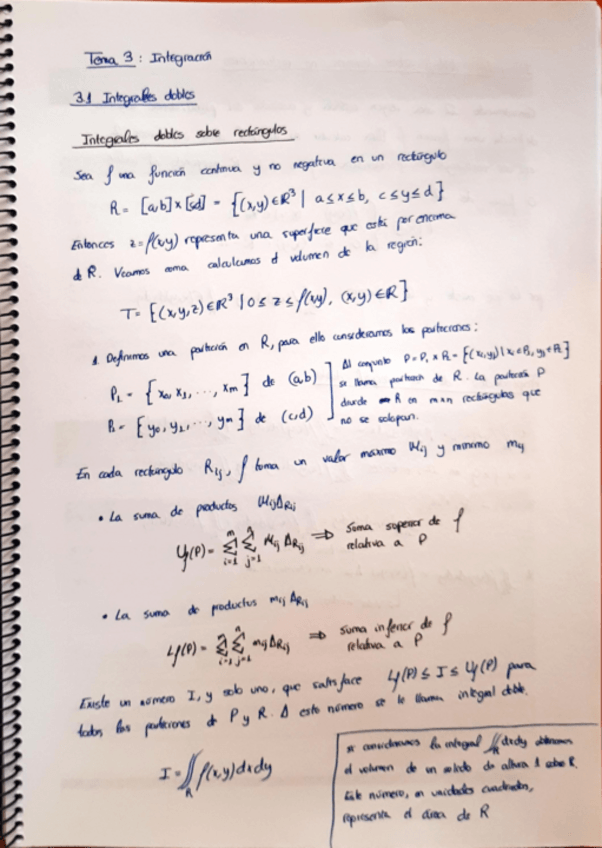 Tema 3: Integración
3.1 Integrales dobles
Integrales dobles sobre rectángulos
Sea f una función continua y no negativa en un rectángulo
R = [a,b]x[c,d] = {(x,y)∈ℝ³ | a≤x≤b, c≤y≤d}
Entonces z=f(x,y) representa una superficie que está por encima
de R. Veamos como calculamos el volumen de la región:
T= {(x,y,z)∈ℝ³ | 0≤z≤f(x,y), (x,y)∈R}
1. Definimos una partición en R, para ello consideramos las particiones:
P₁ = {x₀, x₁, ..., xm} de (a,b)
P₂ = {y₀, y₁, ..., yn} de (c,d)
Al conjunto P=P₁ x P₂ = {(xi,yj) | xi∈P₁, yj∈P₂}
se llama partición de R. La partición P
divide R en mxn rectángulos que
no se solapan.
En cada rectángulo Rij, f toma un valor máximo Mij y mínimo mij
• La suma de productos MijΔRij
Uf(P) = Σ(i=1→m) Σ(j=1→n) Mij ΔRij ⇒ Suma superior de f
relativa a P
• La suma de productos mij ΔRij
Lf(P) = Σ(i=1→m) Σ(j=1→n) mij ΔRij ⇒ Suma inferior de f
relativa a P
Existe un número I, y solo uno, que satisface Lf(P) ≤ I ≤ Uf(P) para
todas las particiones de P y R. A este número se le llama integral doble.
I = ∬R f(x,y)dxdy
si consideramos la integral ∬R dxdy obtenemos
el volumen de un sólido de altura 1 sobre R.
Este número, en unidades cuadradas,
representa el área de R